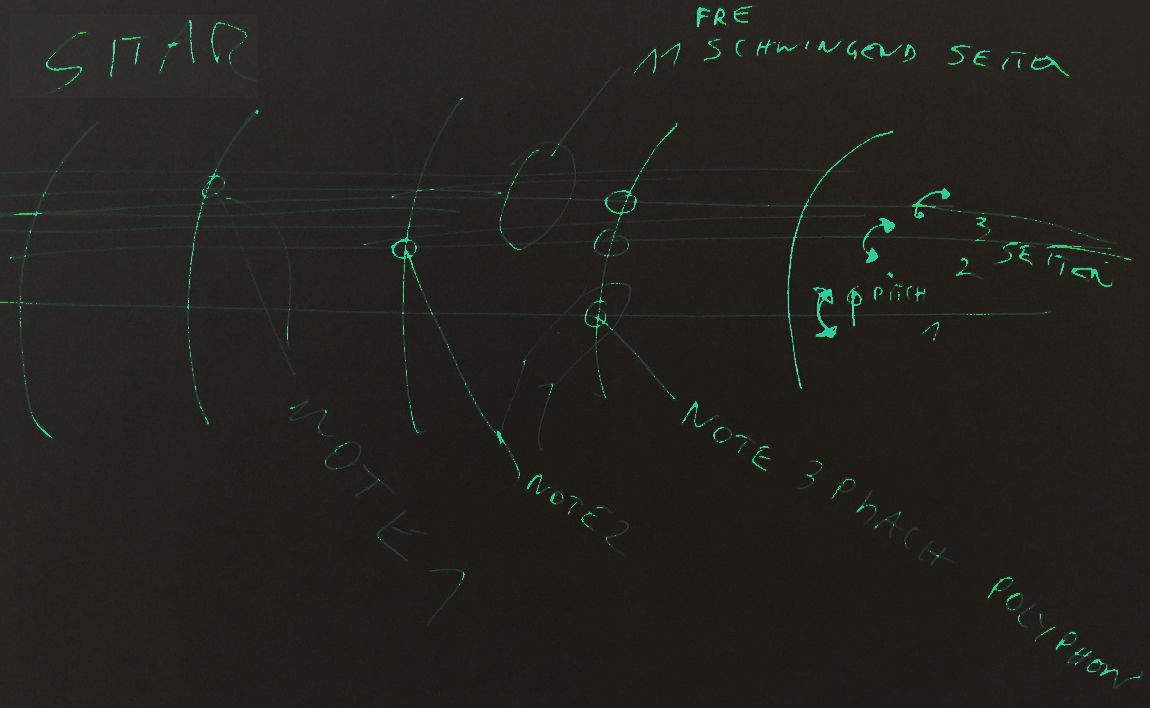 SITAR
FRE
11 SCHWINGEND SEITEN
3
2 SEITEN
PITCH
1
NOTE 1
NOTE 2
NOTE 3 PHACH POLYPHON